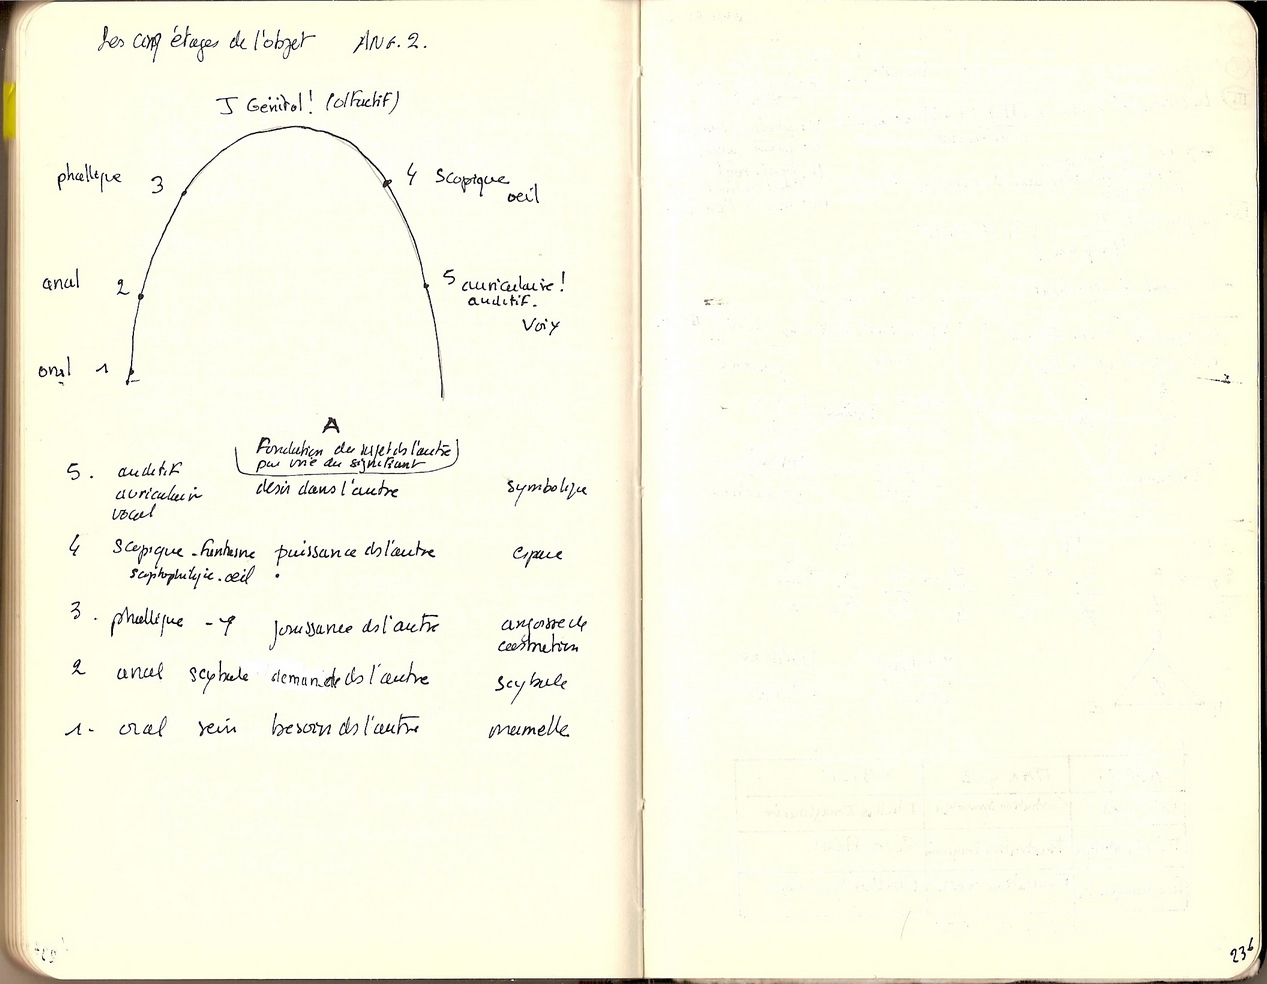 Les cinq étages de l'objet ANG. 2.
J Génital! (olfactif)
phallique 3
4 scopique
oeil
anal 2
5 auriculaire!
auditif.
Voix
oral 1
A
Fondation du sujet ds l'autre
par voie du signifiant
5. auditif désir dans l'autre symbolique
auriculair
vocal
4 scopique - fantasme puissance ds l'autre espace
scoptophilie. oeil .
3. phallique -φ jouissance ds l'autre angoisse de
castration
2 anal scybale demande ds l'autre scybale
1- oral sein besoin ds l'autre mamelle
236